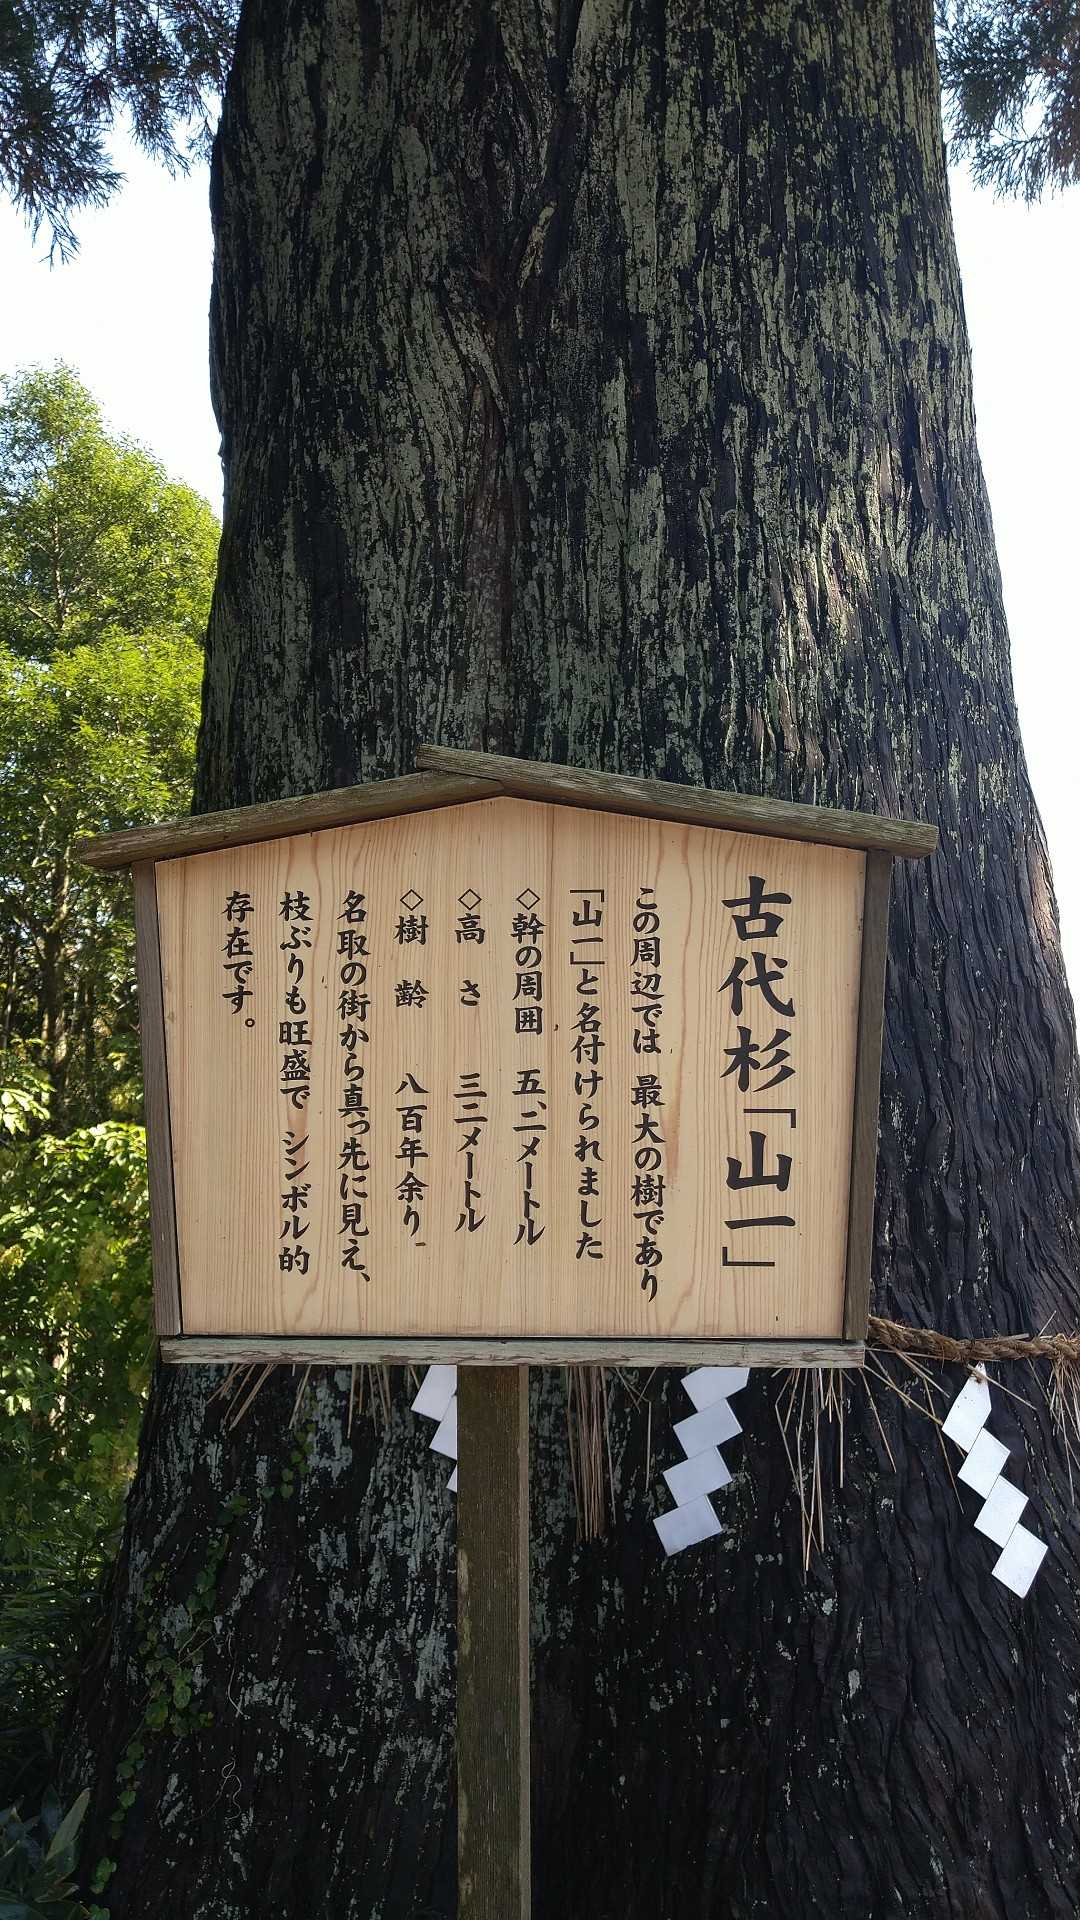 古代杉「山一」
この周辺では 最大の樹であり
「山一」と名付けられました
◇幹の周囲 五、二メートル
◇高さ 三二メートル
◇樹齢 八百年余り
名取の街から真っ先に見え、
枝ぶりも旺盛で シンボル的
存在です。